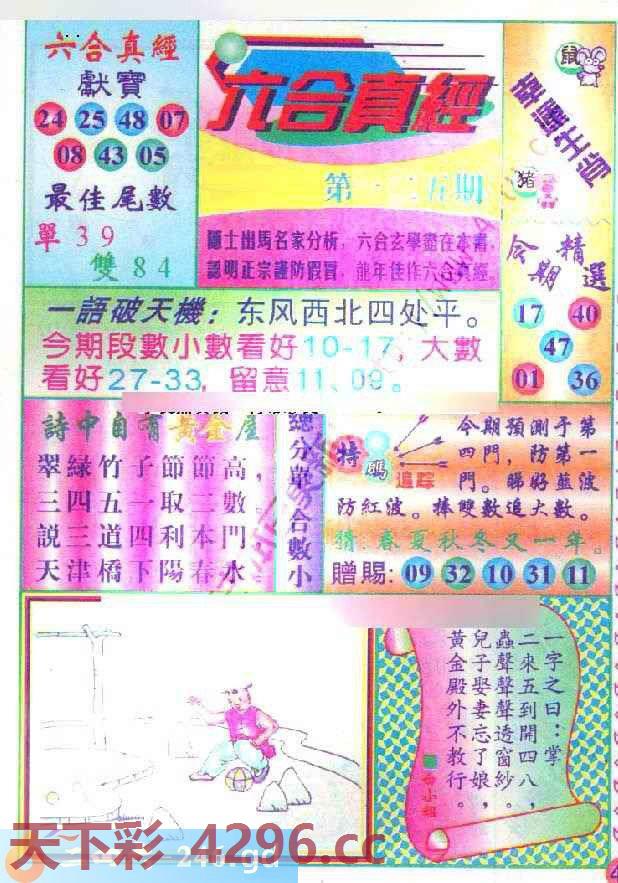 六合真經
獻寶
24 25 48 07
08 43 05
最佳尾數
單 3 9
雙 8 4
六合真經
第一二五期
隱士出馬名家分析，六合玄學盡在本書，
認明正宗謹防假冒，龍年佳作六合真經。
鼠
幸運生肖
豬
今期精選
17 40
47
01 36
一語破天機：东风西北四处平。
今期段數小數看好10-17，大數
看好27-33，留意11、09。
詩中自有黃金屋
翠綠竹子節節高，
三四五一取二數。
説三道四利本門，
天津橋下陽春水。
總分單合數小
特碼
追踪
今期預測于第
四門，防第一
門。睇好藍波
防紅波。捧雙數追大數。
猜：春夏秋冬又一年。
贈賜：09 32 10 31 11
一字之曰：掌
二來五到開四八，
蟲聲聲聲透窗紗。
兒子娶妻忘了娘，
黃金殿外不教行。
天下彩 4296.cc
246.gd